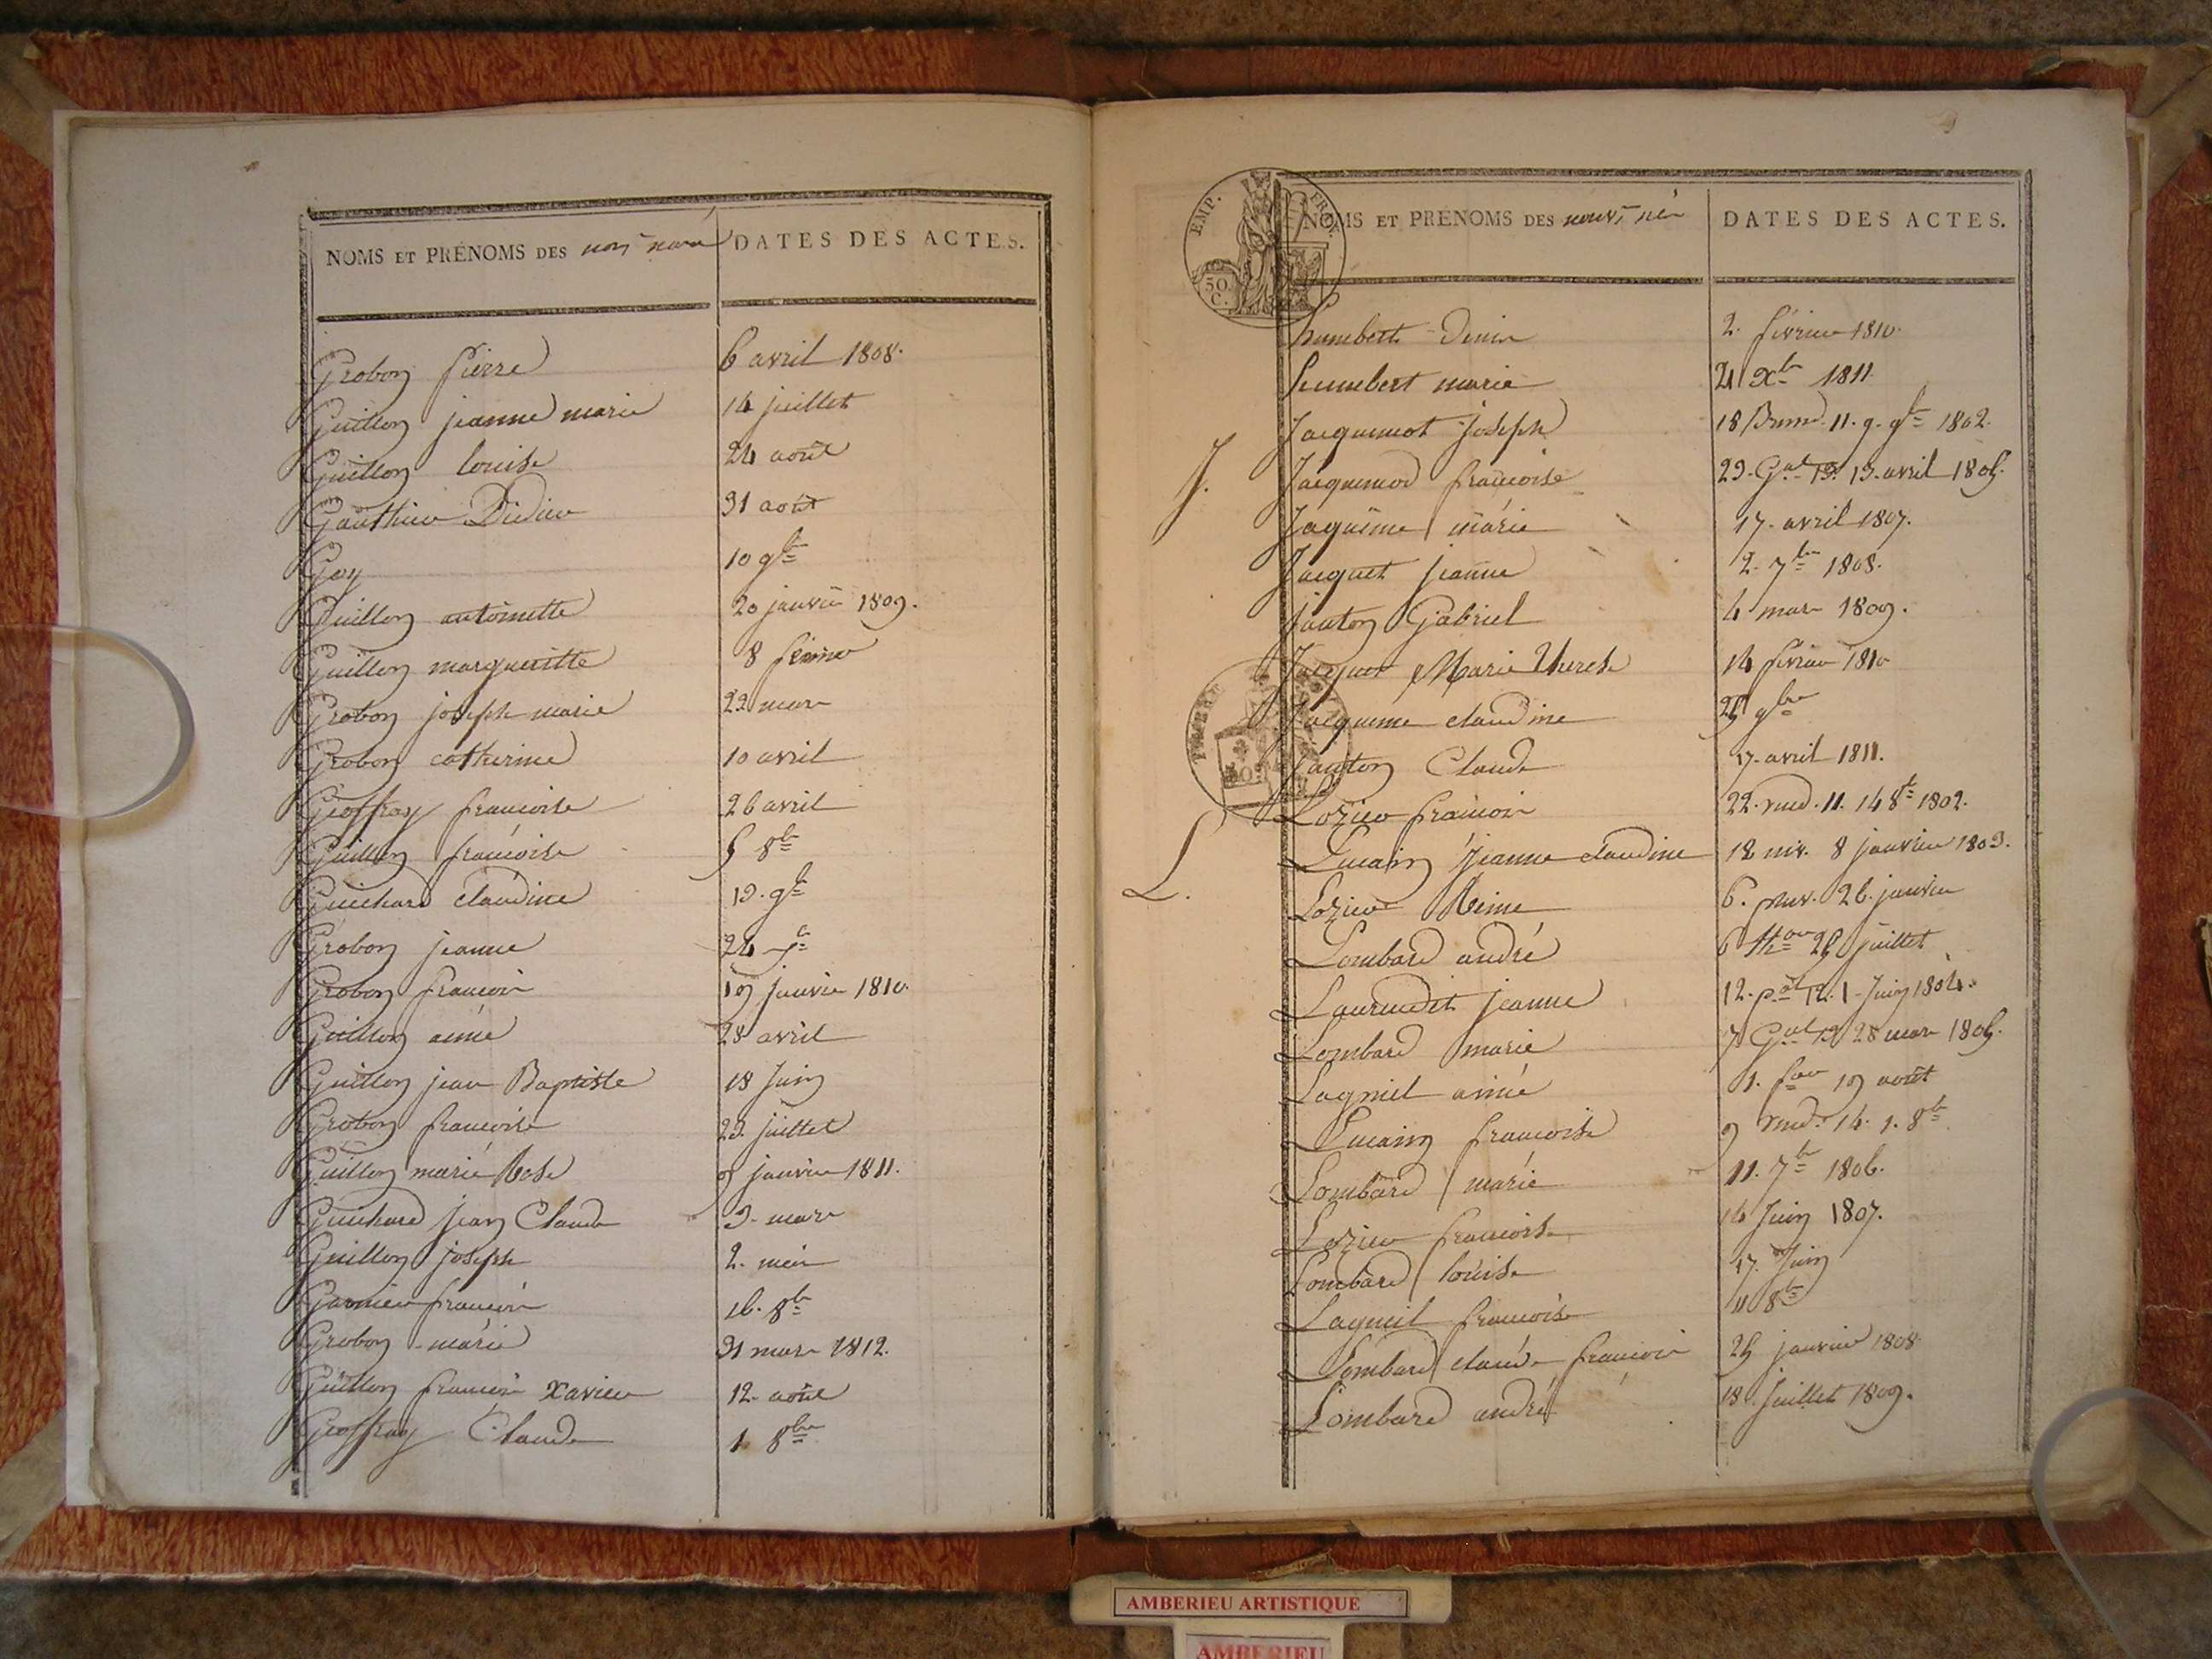 NOMS ET PRÉNOMS DES DATES DES ACTES.
Grobon pierre 6 avril 1808.
Guillon jeanne marie 14 juillet
Guillon louise 24 août
Gauthier Didier 31 août
Goy 10 9bre
Guillon antoinette 20 janvier 1809.
Guillon margueritte 8 février
Grobon joseph marie 22 mars
Grobon catherine 10 avril
Geoffray francoise 26 avril
Guillon francoise 5 8bre
Guichard claudine 13. 9bre
Grobon jeanne 24
Grobon francois 19 janvier 1810.
Guillon aimé 28 avril
Guillon jean Baptiste 18 Juin
Grobon francoise 23. juillet
Guillon marie Rose 9 janvier 1811.
Guichard jean Claude 3. mars
Guillon joseph 2. mai
Garnier francois 16. 8bre
Grobon marie 31 mars 1812.
Guillon francois Xavier 12. août
Geoffray Claude 1 8bre
EMP. FR.
50 C.
NOMS ET PRÉNOMS DES nouv. nés DATES DES ACTES.
humbert Denis 2. février 1810.
humbert marie 21 Xbre 1811.
J.
Jacquemot joseph 18 Brum. 11. 9. 9bre 1802.
Jacquemod francoise 23. Gal 13. 13. avril 1805.
Jaquême marie 17. avril 1807.
Jacquet jeanne 2. 7bre 1808.
janton Gabriel 4 mars 1809.
Jacquet Marie therese 14 février 1810
Jacquême claudine 25 9bre
janton Claude 17. avril 1811.
TIMBRE
L.
Lozier francois 22. vend. 11. 14 8bre 1802.
Lucain jeanne claudine 18 niv. 8 janvier 1803.
Lozier Reine 6. pluv. 26. janvier
Lombard andré 6 thor 25 juillet
Laurendet jeanne 12. pal 12. 1. Juin 1804.
Lombard marie 7 Gal 13 28 mars 1805.
Lagniel aimé 1. for 19 août
Lucain francoise 9 vend. 14. 1. 8bre
Lombard marie 11. 7bre 1806.
Lozier francoise 14 Juin 1807.
Lombard louise 17. Juin
Lagniel francoise 11 8bre
Lombard claude francois 25 janvier 1808
Lombard andré 18. Juillet 1809.
AMBERIEU ARTISTIQUE
AMBERIEU